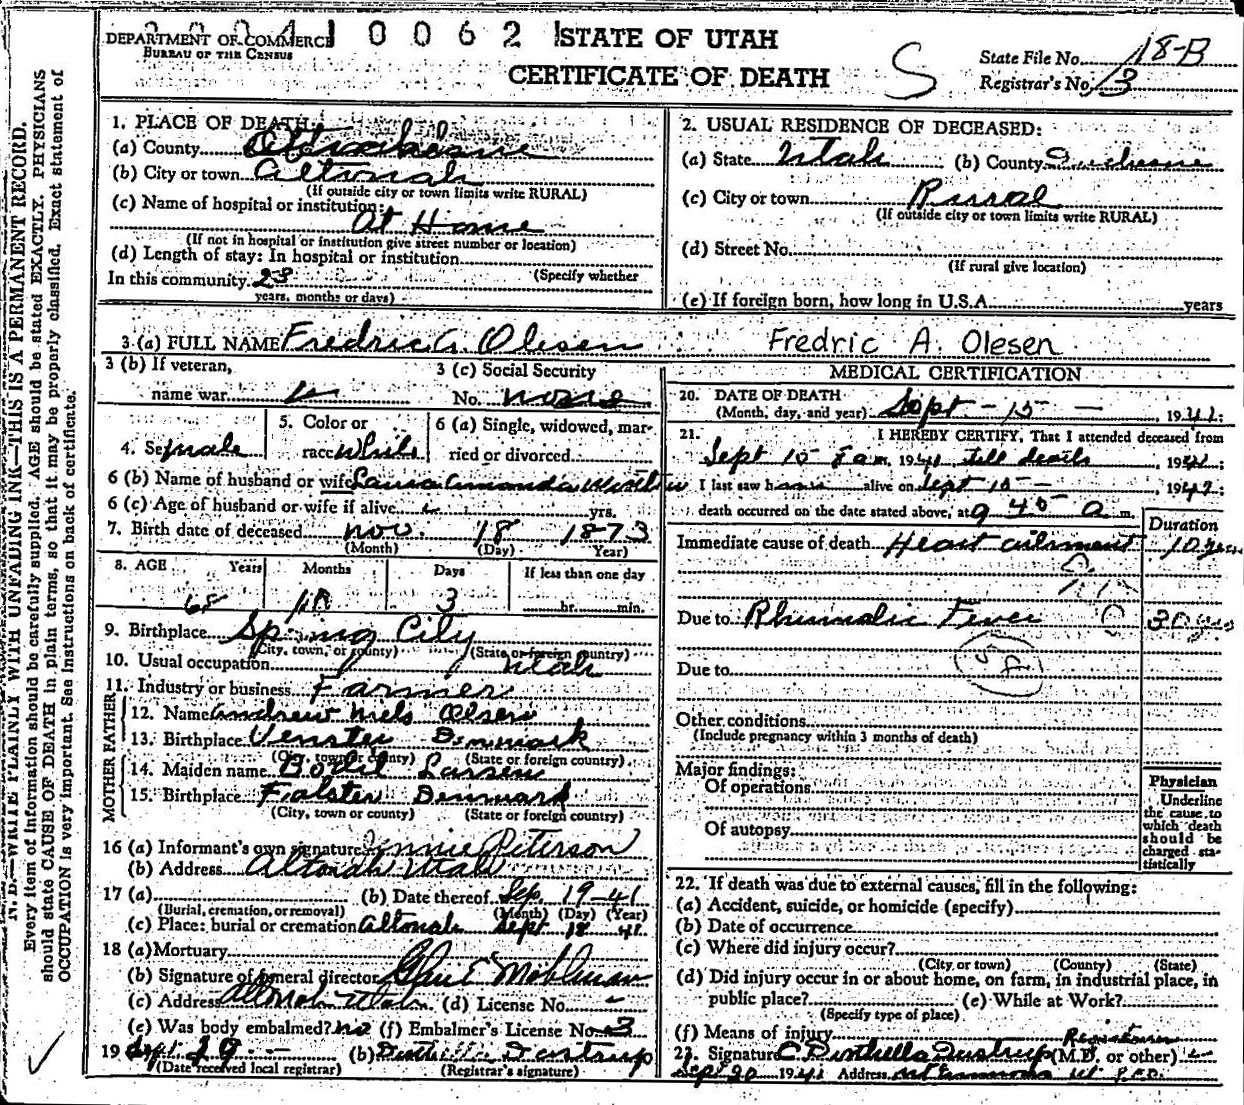 DEPARTMENT OF COMMERCE
BUREAU OF THE CENSUS
10062
STATE OF UTAH
CERTIFICATE OF DEATH
S
State File No. 18-B
Registrar's No. 13
1. PLACE OF DEATH:
(a) County
(b) City or town Altonah
(If outside city or town limits write RURAL)
(c) Name of hospital or institution:
At Home
(If not in hospital or institution give street number or location)
(d) Length of stay: In hospital or institution
(Specify whether
In this community 23
years, months or days)
2. USUAL RESIDENCE OF DECEASED:
(a) State Utah (b) County Duchesne
(c) City or town Rural
(If outside city or town limits write RURAL)
(d) Street No.
(If rural give location)
(e) If foreign born, how long in U.S.A. years
3 (a) FULL NAME Fredric A. Olesen Fredric A. Olesen
3 (b) If veteran,
name war
3 (c) Social Security
No. none
4. Sex male
5. Color or
race White
6 (a) Single, widowed, mar-
ried or divorced
6 (b) Name of husband or wife Laura Amanda
6 (c) Age of husband or wife if alive yrs.
7. Birth date of deceased Nov. 18 1873
(Month) (Day) Year)
8. AGE Years Months Days If less than one day
10 3 hr. min.
9. Birthplace Spring City
(City, town, or county) (State or foreign country)
Utah
10. Usual occupation
11. Industry or business Farmer
FATHER
12. Name Andrew Nels Olsen
13. Birthplace Denmark
(City, town or county) (State or foreign country)
MOTHER
14. Maiden name Bodil Larsen
15. Birthplace Falster Denmark
(City, town or county) (State or foreign country)
16 (a) Informant's own signature Jennie Peterson
(b) Address Altonah Utah
17 (a) (b) Date thereof Sep. 19-41
(Burial, cremation, or removal) (Month) (Day) (Year)
(c) Place: burial or cremation Altonah Sept 18 41
18 (a) Mortuary
(b) Signature of funeral director
(c) Address Altonah Utah (d) License No. -
(e) Was body embalmed? no (f) Embalmer's License No. 3
19 Sept 19 (b)
(Date received local registrar) (Registrar's signature)
MEDICAL CERTIFICATION
20. DATE OF DEATH
(Month, day, and year) Sept - 15 - 1941:
21. I HEREBY CERTIFY, That I attended deceased from
Sept 15 1941 till death 1941;
I last saw h alive on Sept 15 - 19
death occurred on the date stated above, at 9 45 a m.
Duration
Immediate cause of death Heart ailment 10 years
Due to Rhumatic Fever 30
58
Due to
Other conditions
(Include pregnancy within 3 months of death)
Major findings:
Of operations
Of autopsy
Physician
Underline
the cause to
which death
should be
charged sta-
tistically
22. If death was due to external causes, fill in the following:
(a) Accident, suicide, or homicide (specify)
(b) Date of occurrence
(c) Where did injury occur?
(City or town) (County) (State)
(d) Did injury occur in or about home, on farm, in industrial place, in
public place? (e) While at Work?
(Specify type of place)
(f) Means of injury Registrar
23. Signature (M.D. or other)
Sept 20 1941 Address
N.B.—WRITE PLAINLY WITH UNFADING INK—THIS IS A PERMANENT RECORD.
Every item of information should be carefully supplied. AGE should be stated EXACTLY. PHYSICIANS
should state CAUSE OF DEATH in plain terms, so that it may be properly classified. Exact statement of
OCCUPATION is very important. See instructions on back of certificate.